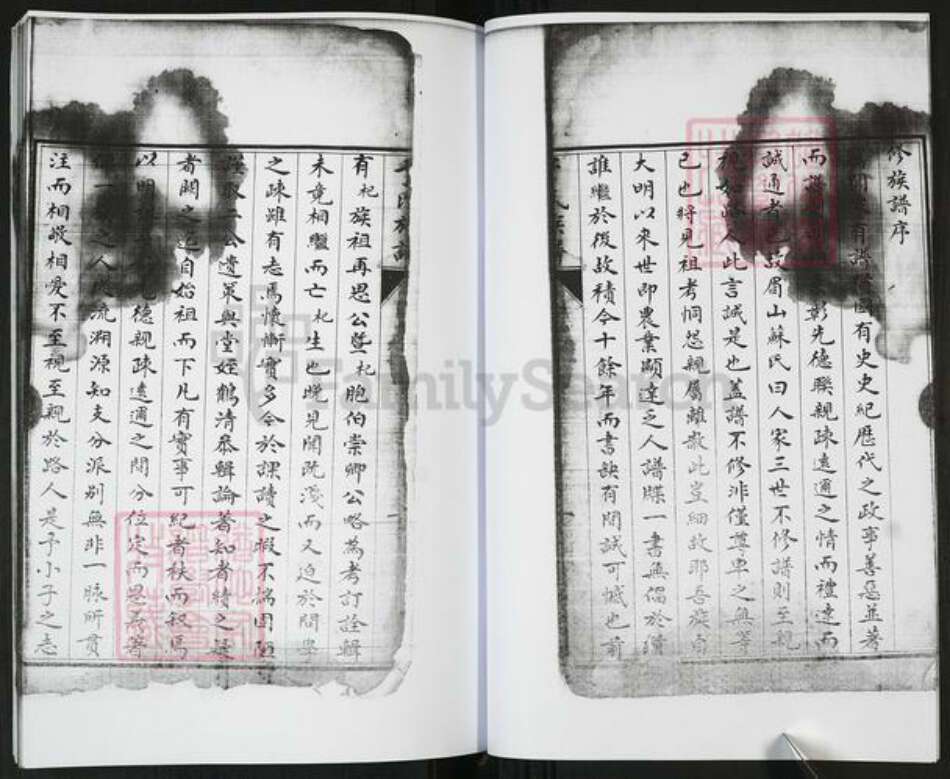 修族譜序
有譜 國有史史紀歷代之政事善惡並著
而譜 彰先德聯親疎遠邇之情而禮達而
誠通者也故眉山蘇氏曰人家三世不修譜則至親
視如路人此言誠是也蓋譜不修非僅尊卑之無等
已也將見祖考恫怨親屬離散此豈細故耶吾族自
大明以來世即農業顯達乏人譜牒一書無倡於
誰繼於後故積今十餘年而書缺有間誠可慽也前
氏族譜
有杞族祖再思公暨杞胞伯崇卿公略為考訂詮輯
未竟相繼而亡杞生也晚見聞既淺而又迫於問學
之疎雖有志焉懷慚實多今於課讀之暇不揣固陋
取二公遺策與堂姪鶴清叅輯論著知者續之疑
者闕之 自始祖而下凡有實事可紀者秩而叙焉
以明 德親疎遠邇之間分位定而恩
一 之人 流溯源知支分派別無非一脉所貫
注而相敬相愛不至視至親於路人是予小子之志
FamilySearch